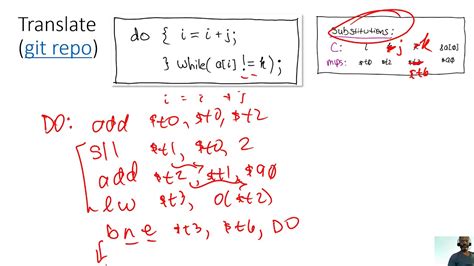 Translate
(git repo)
do { i = i + j;
} while (a[i] != k);
Substitutions:
C: i j k &a[0]
mips: $t0 $t2 $t6 $a0
i = i + j
DO: add $t0, $t0, $t2
sll $t1, $t0, 2
add $t2, $t1, $a0
lw $t3, 0($t2)
bne $t3, $t6, DO